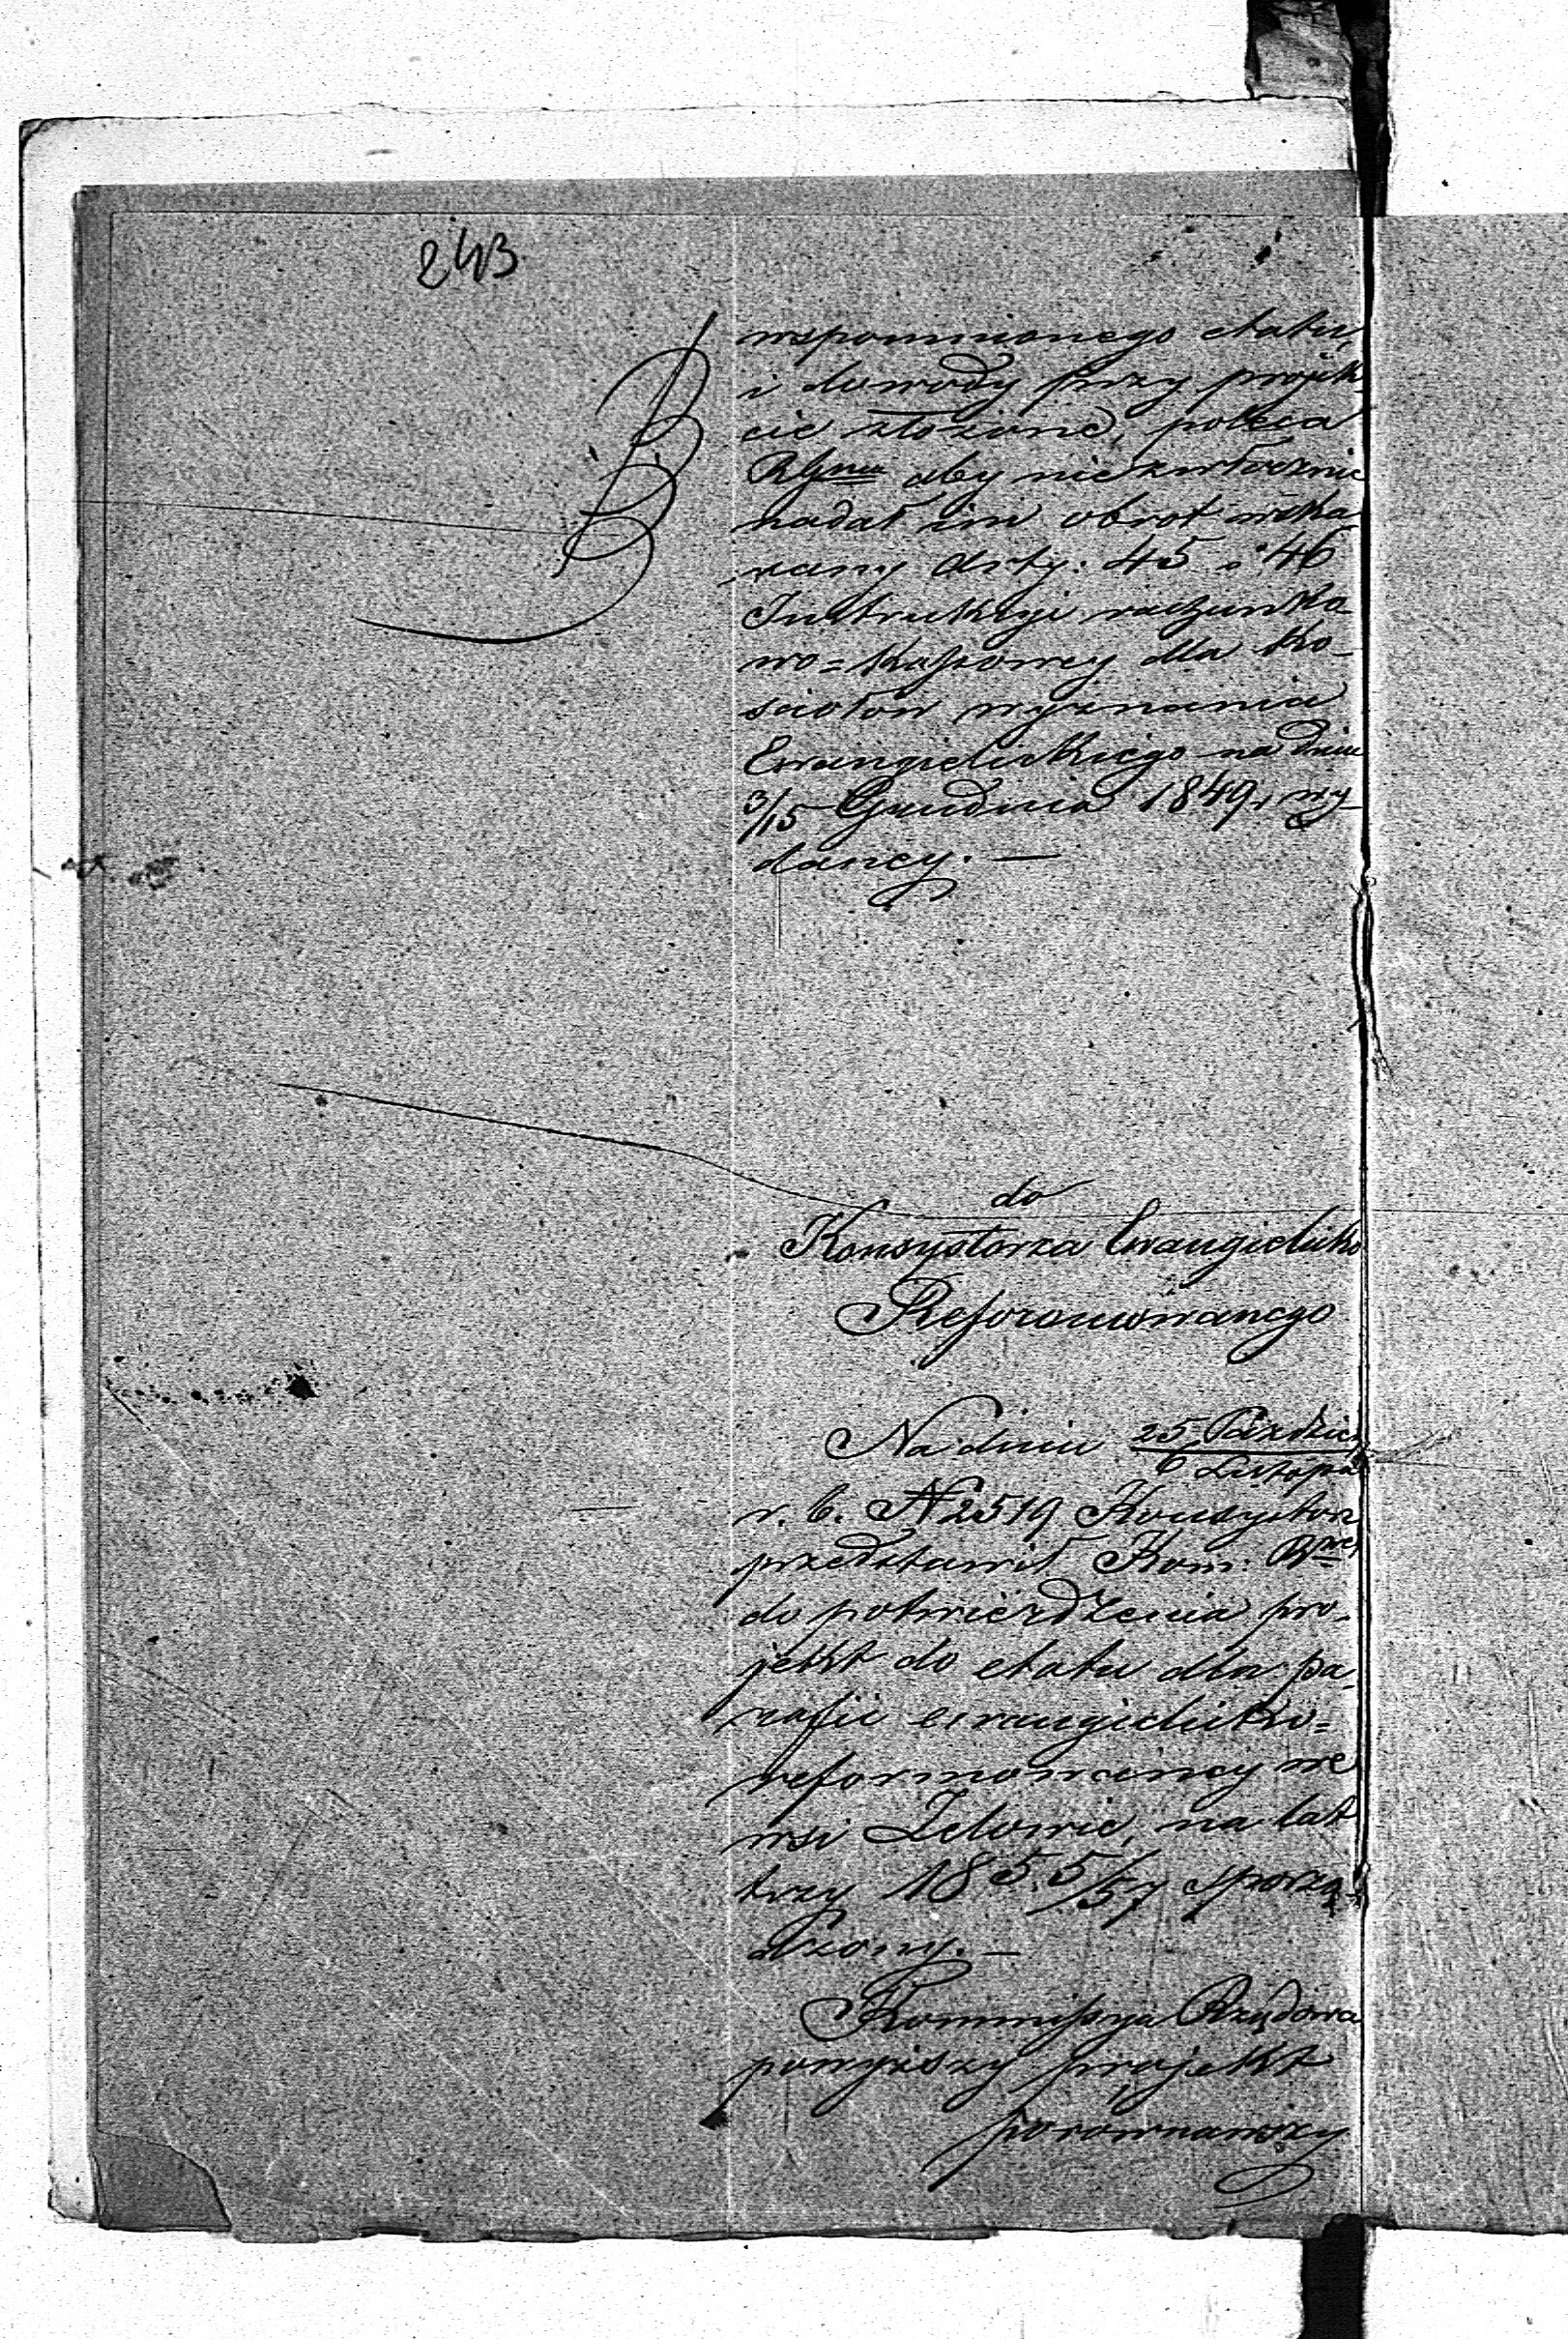 243
wspomnionego etatu,
i dowody przy projek
cie złożone, poleca
aby niezwłocznie
nadał im obrot wska
zany Arty: 45 i 46
Instrukcyi rachunko
wo=kassowey dla Ko_
sciołow wyznania
Ewangielickiego na dniu
3/15 Grudnia 1849 r. wy
daney. —
do
Konsystorza Ewangielicko
Reformowanego
Na dniu 25 Paździer
6 Listopa
r. b. N 2519 Konsystorz
przedstawił Kom: Rwey
do potwierdzenia pro_
jekt do etatu dla pa_
rafii ewangielicko=
reformowaney we
wsi Zelowie, na lat
trzy 1855/57 sporzą_
dzony. —
Kommissya Rządowa
powyższy projekt
porownawszy